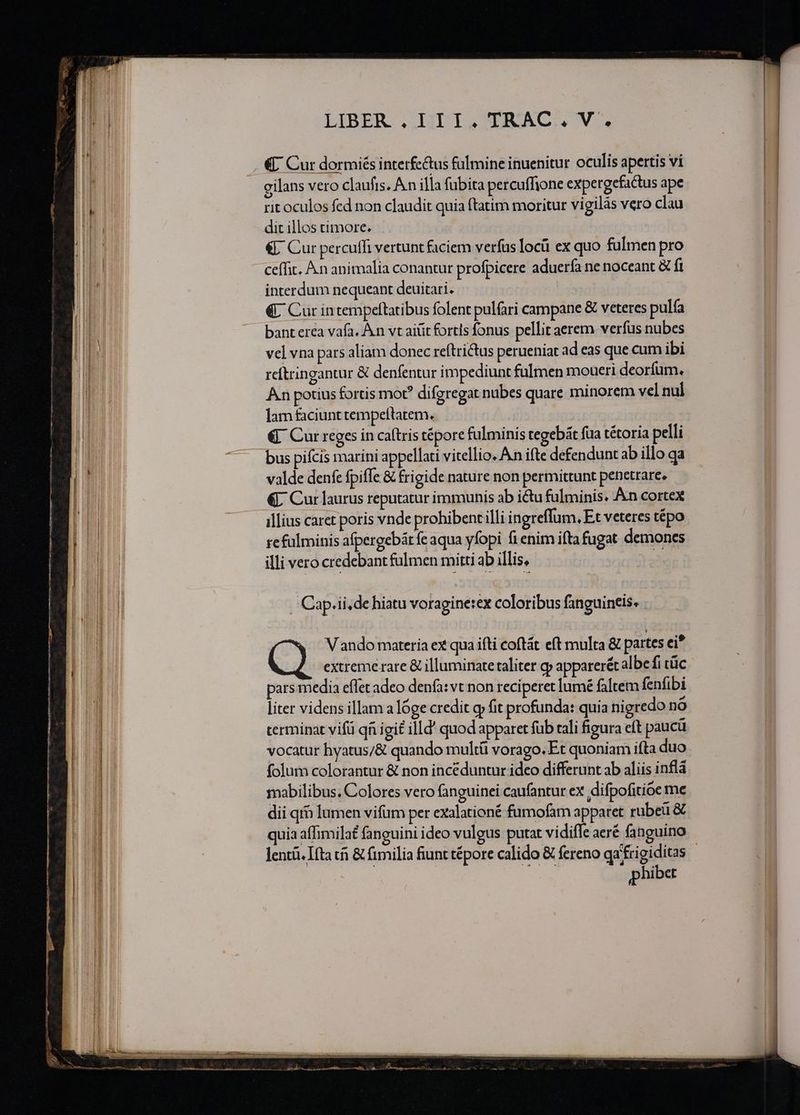 LIBER . III. TRAC. V.
⸿ Cur dormiēs interfectus fulmine inuenitur oculis apertis vi
gilans vero clausis. An illa subita percussione expergefactus ape
rit oculos sed non claudit quia statim moritur vigilās vero clau
dit illos timore.
⸿ Cur percussi vertunt faciem versus locū ex quo fulmen pro
cessit. An animalia conantur prospicere aduersa ne noceant & si
interdum nequeant deuitari.
⸿ Cur in tempestatibus solent pulsari campane & veteres pulsa
bant erea vasa. An vt aiūt fortis sonus pellit aerem versus nubes
vel vna pars aliam donec restrictus perueniat ad eas que cum ibi
restringantur & densentur impediunt fulmen moueri deorsum.
An potius fortis motꝰ disgregat nubes quare minorem vel nul
lam faciunt tempestatem.
⸿ Cur reges in castris tēpore fulminis tegebāt sua tētoria pelli
bus piscis marini appellati vitellio. An iste defendunt ab illo qa
valde dense spisse & frigide nature non permittunt penetrare.
⸿ Cur laurus reputatur immunis ab ictu fulminis. An cortex
illius caret poris vnde prohibent illi ingressum. Et veteres tēpo
re fulminis aspergebāt se aqua ysopi si enim ista fugat demones
illi vero credebant fulmen mitti ab illis.
Cap.ii.de hiatu voragine:ex coloribus sanguineis.
QVando materia ex qua isti costāt est multa & partes eiꝰ
extreme rare & illuminate taliter ꝙ apparerēt albe si tūc
pars media esset adeo densa: vt non reciperet lumē saltem sensibi
liter videns illam a lōge credit ꝙ sit profunda: quia nigredo nō
terminat visū qñ igit̄ illd' quod apparet sub tali figura est paucū
vocatur hyatus/& quando multū vorago. Et quoniam ista duo
solum colorantur & non incēduntur ideo differunt ab aliis inflā
mabilibus. Colores vero sanguinei causantur ex ,dispositiōe me
dii qm̄ lumen visum per exalationē fumosam apparet rubeū &
quia assimilat̄ sanguini ideo vulgus putat vidisse aerē sanguino
lentū. Ista tñ & similia fiunt tēpore calido & sereno qa frigiditas
ꝓhibet